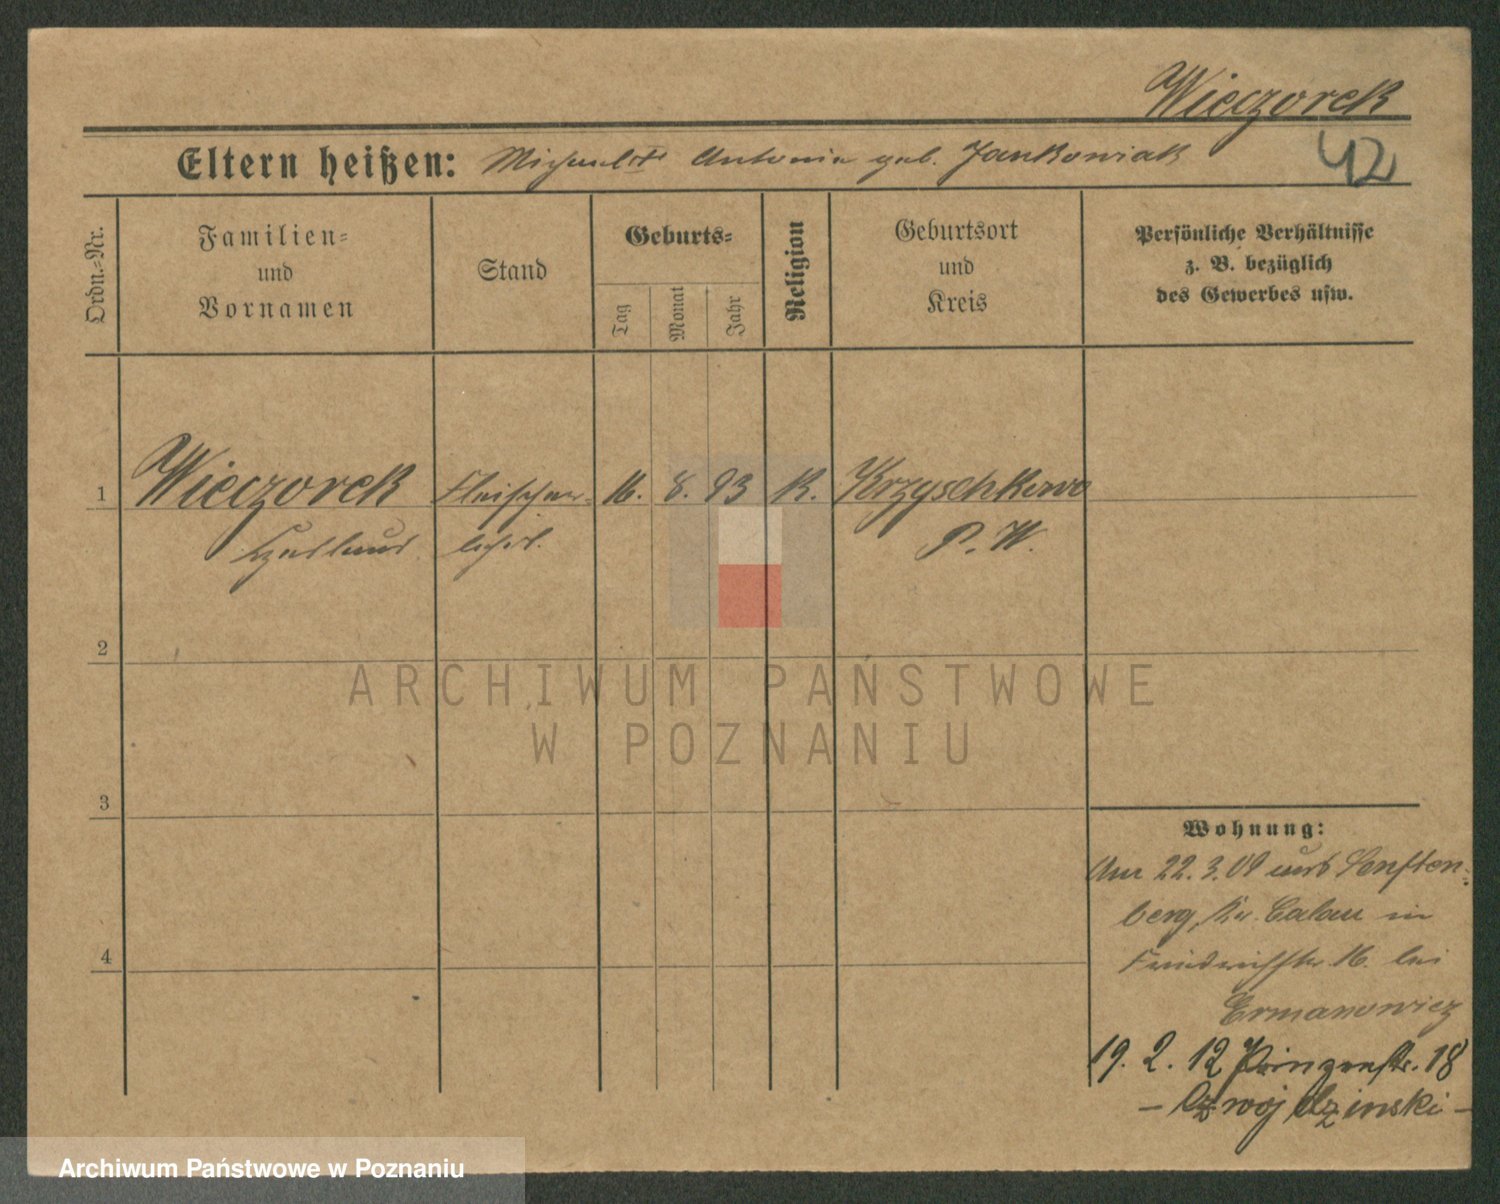 Wieczorek
Eltern heißen: Michael † Antonie geb. Jankowiak
42
Ordn.-Nr.
Familien-
und
Vornamen
Stand
Geburts-
Tag
Monat
Jahr
Religion
Geburtsort
und
Kreis
Persönliche Verhältnisse
z. B. bezüglich
des Gewerbes usw.
1
Wieczorek
Fleischer-
16. 8. 93 K. Krzyschkowo
lehrl.
P. W.
2
ARCHIWUM PAŃSTWOWE
W POZNANIU
3
Wohnung:
Am 22. 3. 09 aus Senften-
berg, Kr. Calau in
4
Friedrichstr. 16. bei
Ermanowicz
19. 2. 12 Prinzenstr. 18
Archiwum Państwowe w Poznaniu